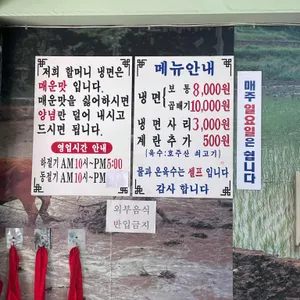 저희 할머니 냉면은
매운맛 입니다.
매운맛을 싫어하시면
양념만 덜어 내시고
드시면 됩니다.
영업시간 안내
하절기 AM10시~PM5:00
동절기 AM10시~PM
메뉴안내
냉면 보통 8,000원
곱빼기 10,000원
냉면사리 3,000원
계란추가 500원
(육수:호주산 쇠고기)
물과 온육수는 셀프 입니다
감사 합니다
매주 일요일은 쉽니다
외부음식
반입금지